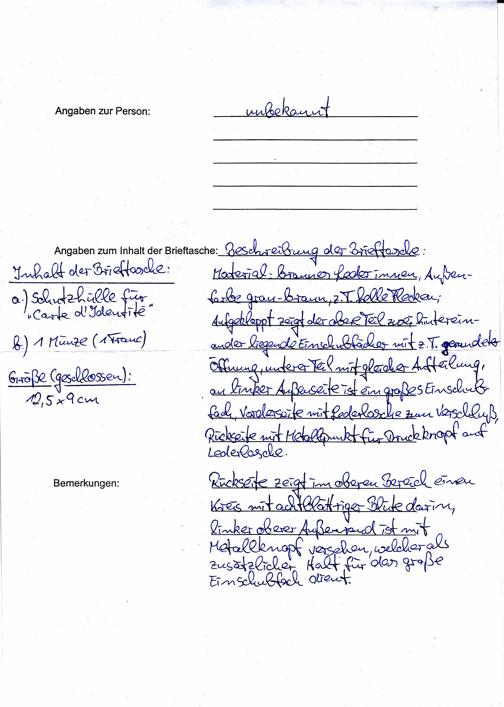 Angaben zur Person: unbekannt
Angaben zum Inhalt der Brieftasche: Beschreibung der Brieftasche:
Inhalt der Brieftasche:
a.) Schutzhülle für
"Carte d'Identité"
b.) 1 Münze (1 Franc)
Größe (geschlossen):
12,5 x 9 cm
Material: Braunes Leder innen, Außen-
farbe grau-braun, z.T. helle Flecken,
Aufgeklappt zeigt der obere Teil zwei hinterein-
ander liegende Einschubfächer mit z.T. gerundeter
Öffnung, unterer Teil mit gleicher Aufteilung,
an linker Außenseite ist ein großes Einschub-
fach, Vorderseite mit Lederlasche zum Verschluß,
Rückseite mit Metallpunkt für Druckknopf auf
Lederlasche.
Bemerkungen:
Rückseite zeigt im oberen Bereich einen
Kreis mit achtblättriger Blüte darin,
linker oberer Außenrand ist mit
Metallknopf versehen, welcher als
zusätzlicher Halt für das große
Einschubfach dient.